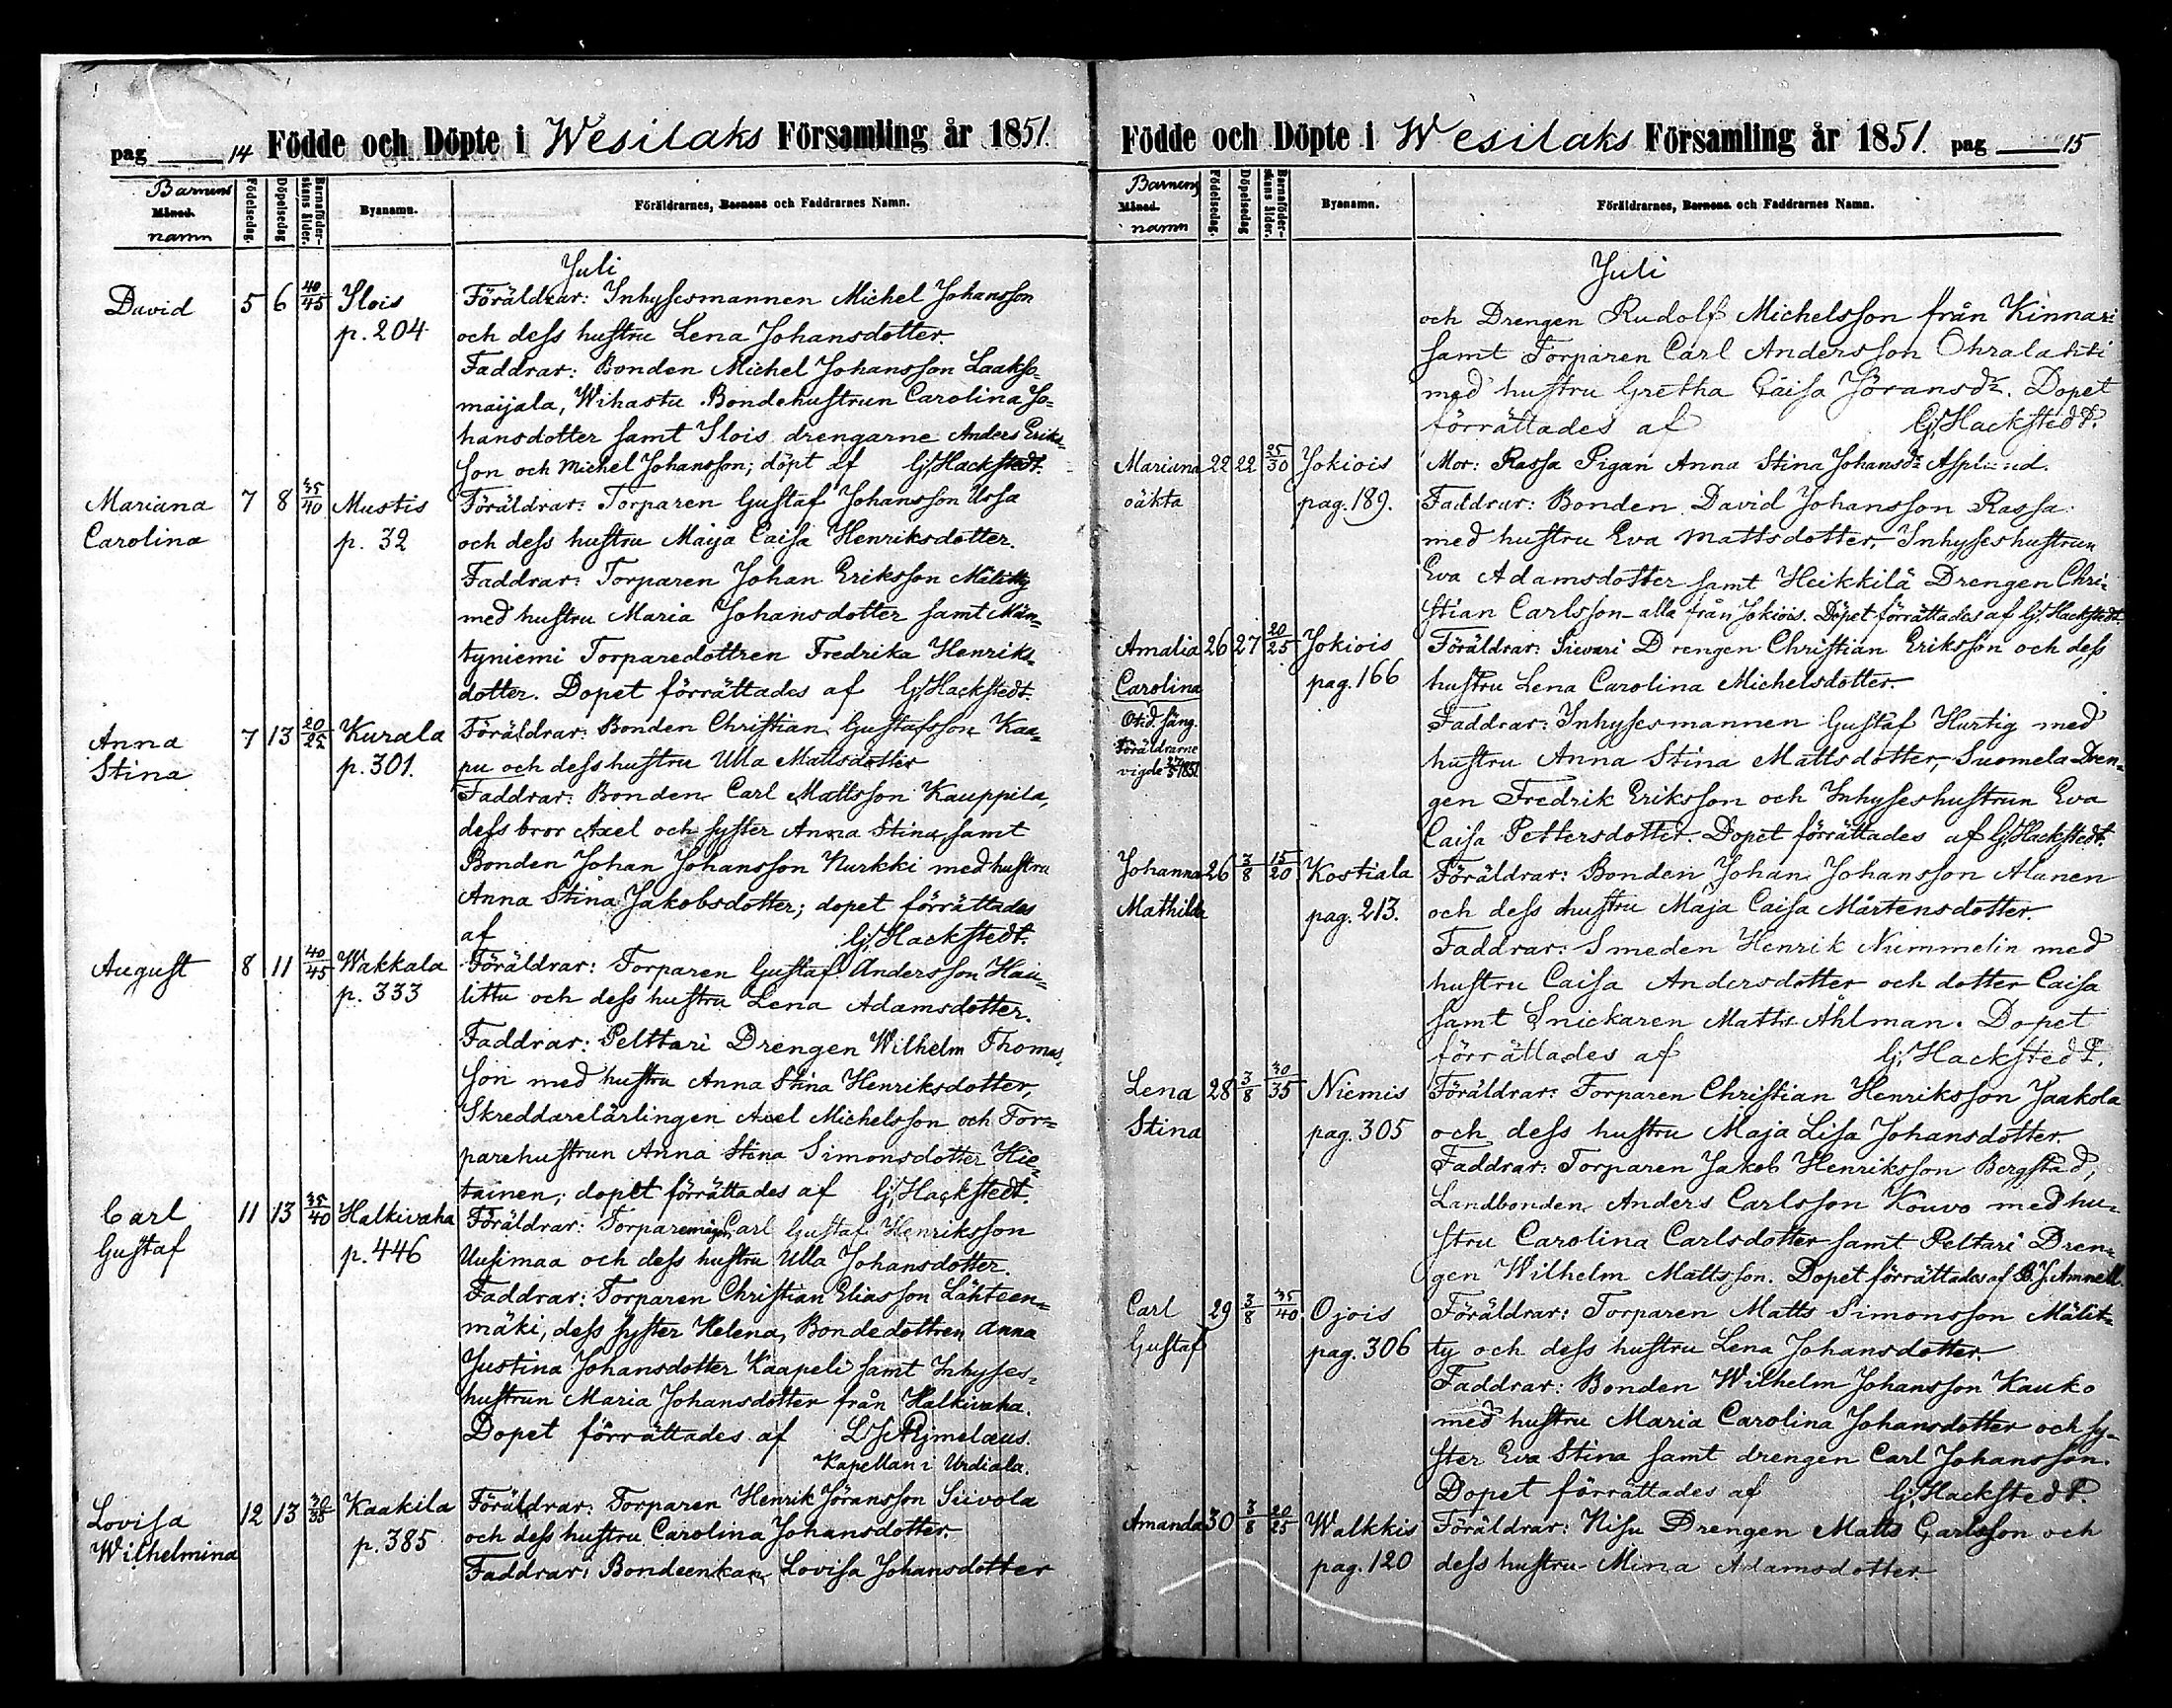 pag 14 Födde och Döpte i Wesilaks Församling år 1851.
Barnens
Månad.
namn
Födelsedag.
Döpelsedag
Barnaföderskans ålder.
Byanamn.
Föräldrarnes, Barnens och Faddrarnes Namn.
Juli
David 5 6 40/45 Slois Föräldrar: Inhysesmannen Michel Johansson
p. 204 och dess hustru Lena Johansdotter.
Faddrar: Bonden Michel Johansson Laakso=
maijala, Wihastu Bondehustrun Carolina Jo=
hansdotter samt Slois drengarne Anders Eriks=
son och Michel Johansson; döpt af Gj. Hackstedt.
Mariana 7 8 35/40 Mustis Föräldrar: Torparen Gustaf Johansson Ussa
Carolina p. 32 och dess hustru Maija Caisa Henriksdotter.
Faddrar: Torparen Johan Eriksson Mälitty
med hustru Maria Johansdotter samt Män=
tyniemi Torparedottren Fredrika Henriks=
dotter. Dopet förrättades af Gj. Hackstedt.
Anna 7 13 20/25 Kurala Föräldrar: Bonden Christian Gustafsson Kaa=
Stina p. 301. pu och dess hustru Ulla Mattsdotter
Faddrar: Bonden Carl Mattsson Kauppila,
dess bror Axel och syster Anna Stina samt
Bonden Johan Johansson Nurkki med hustru
Anna Stina Jakobsdotter; dopet förrättades
af Gj. Hackstedt.
August 8 11 40/45 Wakkala Föräldrar: Torparen Gustaf Andersson Hau=
p. 333 littu och dess hustru Lena Adamsdotter.
Faddrar: Pelttari Drengen Wilhelm Thomas=
son med hustru Anna Stina Henriksdotter,
Skreddarelärlingen Axel Michelsson och Tor=
parehustrun Anna Stina Simonsdotter Hie=
tainen; dopet förrättades af Gj. Hackstedt.
Carl 11 13 35/40 Halkivaha Föräldrar: Torparemågen Carl Gustaf Henriksson
Gustaf p. 446 Uusimaa och dess hustru Ulla Johansdotter.
Faddrar: Torparen Christian Eliasson Lähteen=
mäki, dess syster Helena, Bondedottren Anna
Justina Johansdotter Kaapeli samt Inhyses=
hustrun Maria Johansdotter från Halkivaha.
Dopet förrättades af
Kapellan i Urdiala.
Lovisa 12 13 30/35 Kaakila Föräldrar: Torparen Henrik Jöransson Siivola
Wilhelmina p. 385 och dess hustru Carolina Johansdotter.
Faddrar: Bondeenkan Lovisa Johansdotter
Födde och Döpte i Wesilaks Församling år 1851. pag 15
Barnens
Månad.
namn
Födelsedag.
Döpelsedag
Barnaföderskans ålder.
Byanamn.
Föräldrarnes, Barnens och Faddrarnes Namn.
Juli
och Drengen Rudolf Michelsson från Kinnari
samt Torparen Carl Andersson Ohralahti
med hustru Gretha Caisa Jöransdr. Dopet
förrättades af Gj. Hackstedt.
Mariana 22 22 25/30 Jokiois Mor: Rassa Pigan Anna Stina Johansdr Asplund.
oäkta pag. 189. Faddrar: Bonden David Johansson Rassa
med hustru Eva Mattsdotter, Inhyseshustrun
Eva Adamsdotter samt Heikkilä Drengen Chri=
stian Carlsson alla från Jokiois. Dopet förrättades af Gj. Hackstedt.
Amalia 26 27 20/25 Jokiois Föräldrar: Sievari Drengen Christian Eriksson och dess
Carolina pag. 166 hustru Lena Carolina Michelsdotter.
Otid. säng. Faddrar: Inhysesmannen Gustaf Hurtig med
Föräldrarne
vigde 1851 hustru Anna Stina Mattsdotter, Suomela Dren=
gen Fredrik Eriksson och Inhyseshustrun Eva
Caisa Pettersdotter. Dopet förrättades af Gj. Hackstedt.
Johanna 26 3/8 15/20 Kostiala Föräldrar: Bonden Johan Johansson Alanen
Mathilda pag. 213. och dess hustru Maja Caisa Mårtensdotter.
Faddrar: Smeden Henrik Nummelin med
hustru Caisa Andersdotter och dotter Caisa
samt Snickaren Matts Åhlman. Dopet
förrättades af Gj. Hackstedt.
Lena 28 3/8 30/35 Niemis Föräldrar: Torparen Christian Henriksson Jaakola
Stina pag. 305 och dess hustru Maja Lisa Johansdotter.
Faddrar: Torparen Jakob Henriksson Bergstad,
Landbonden Anders Carlsson Kouvo med hu=
stru Carolina Carlsdotter samt Peltari Dren=
gen Wilhelm Mattsson. Dopet förrättades af B. J. Amnell
Carl 29 3/8 35/40 Ojois Föräldrar: Torparen Matts Simonsson Mälit=
Gustaf pag. 306 ty och dess hustru Lena Johansdotter.
Faddrar: Bonden Wilhelm Johansson Kauko
med hustru Maria Carolina Johansdotter och sy=
ster Eva Stina samt drengen Carl Johansson.
Dopet förrättades af Gj. Hackstedt.
Amanda 30 3/8 20/25 Walkkis Föräldrar: Nisu Drengen Matts Carlsson och
pag. 120 dess hustru Mina Adamsdotter.